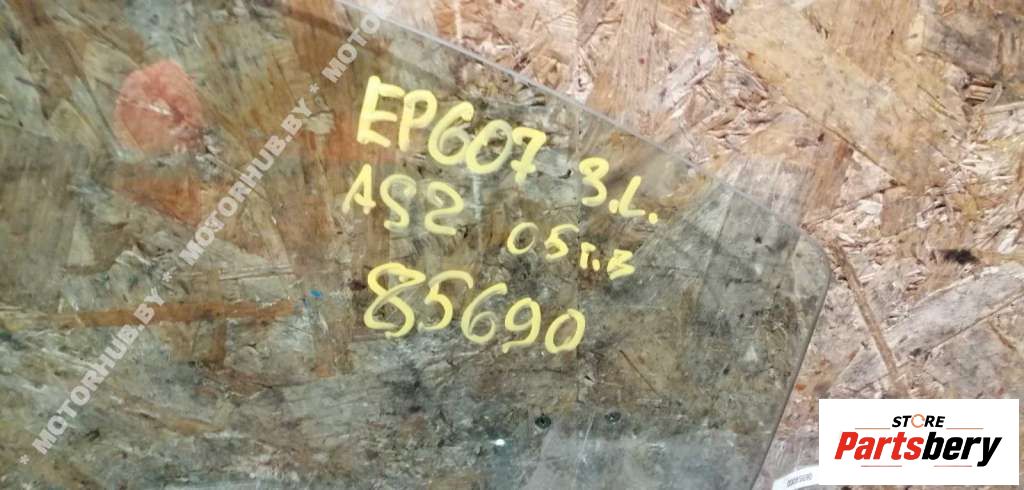 EP607 З.L.
AS2 05г.в
85690
* MOTORHUB.BY * MOTORHUB.BY * MOTORHUB.BY * MOTO
STORE
Partsbery